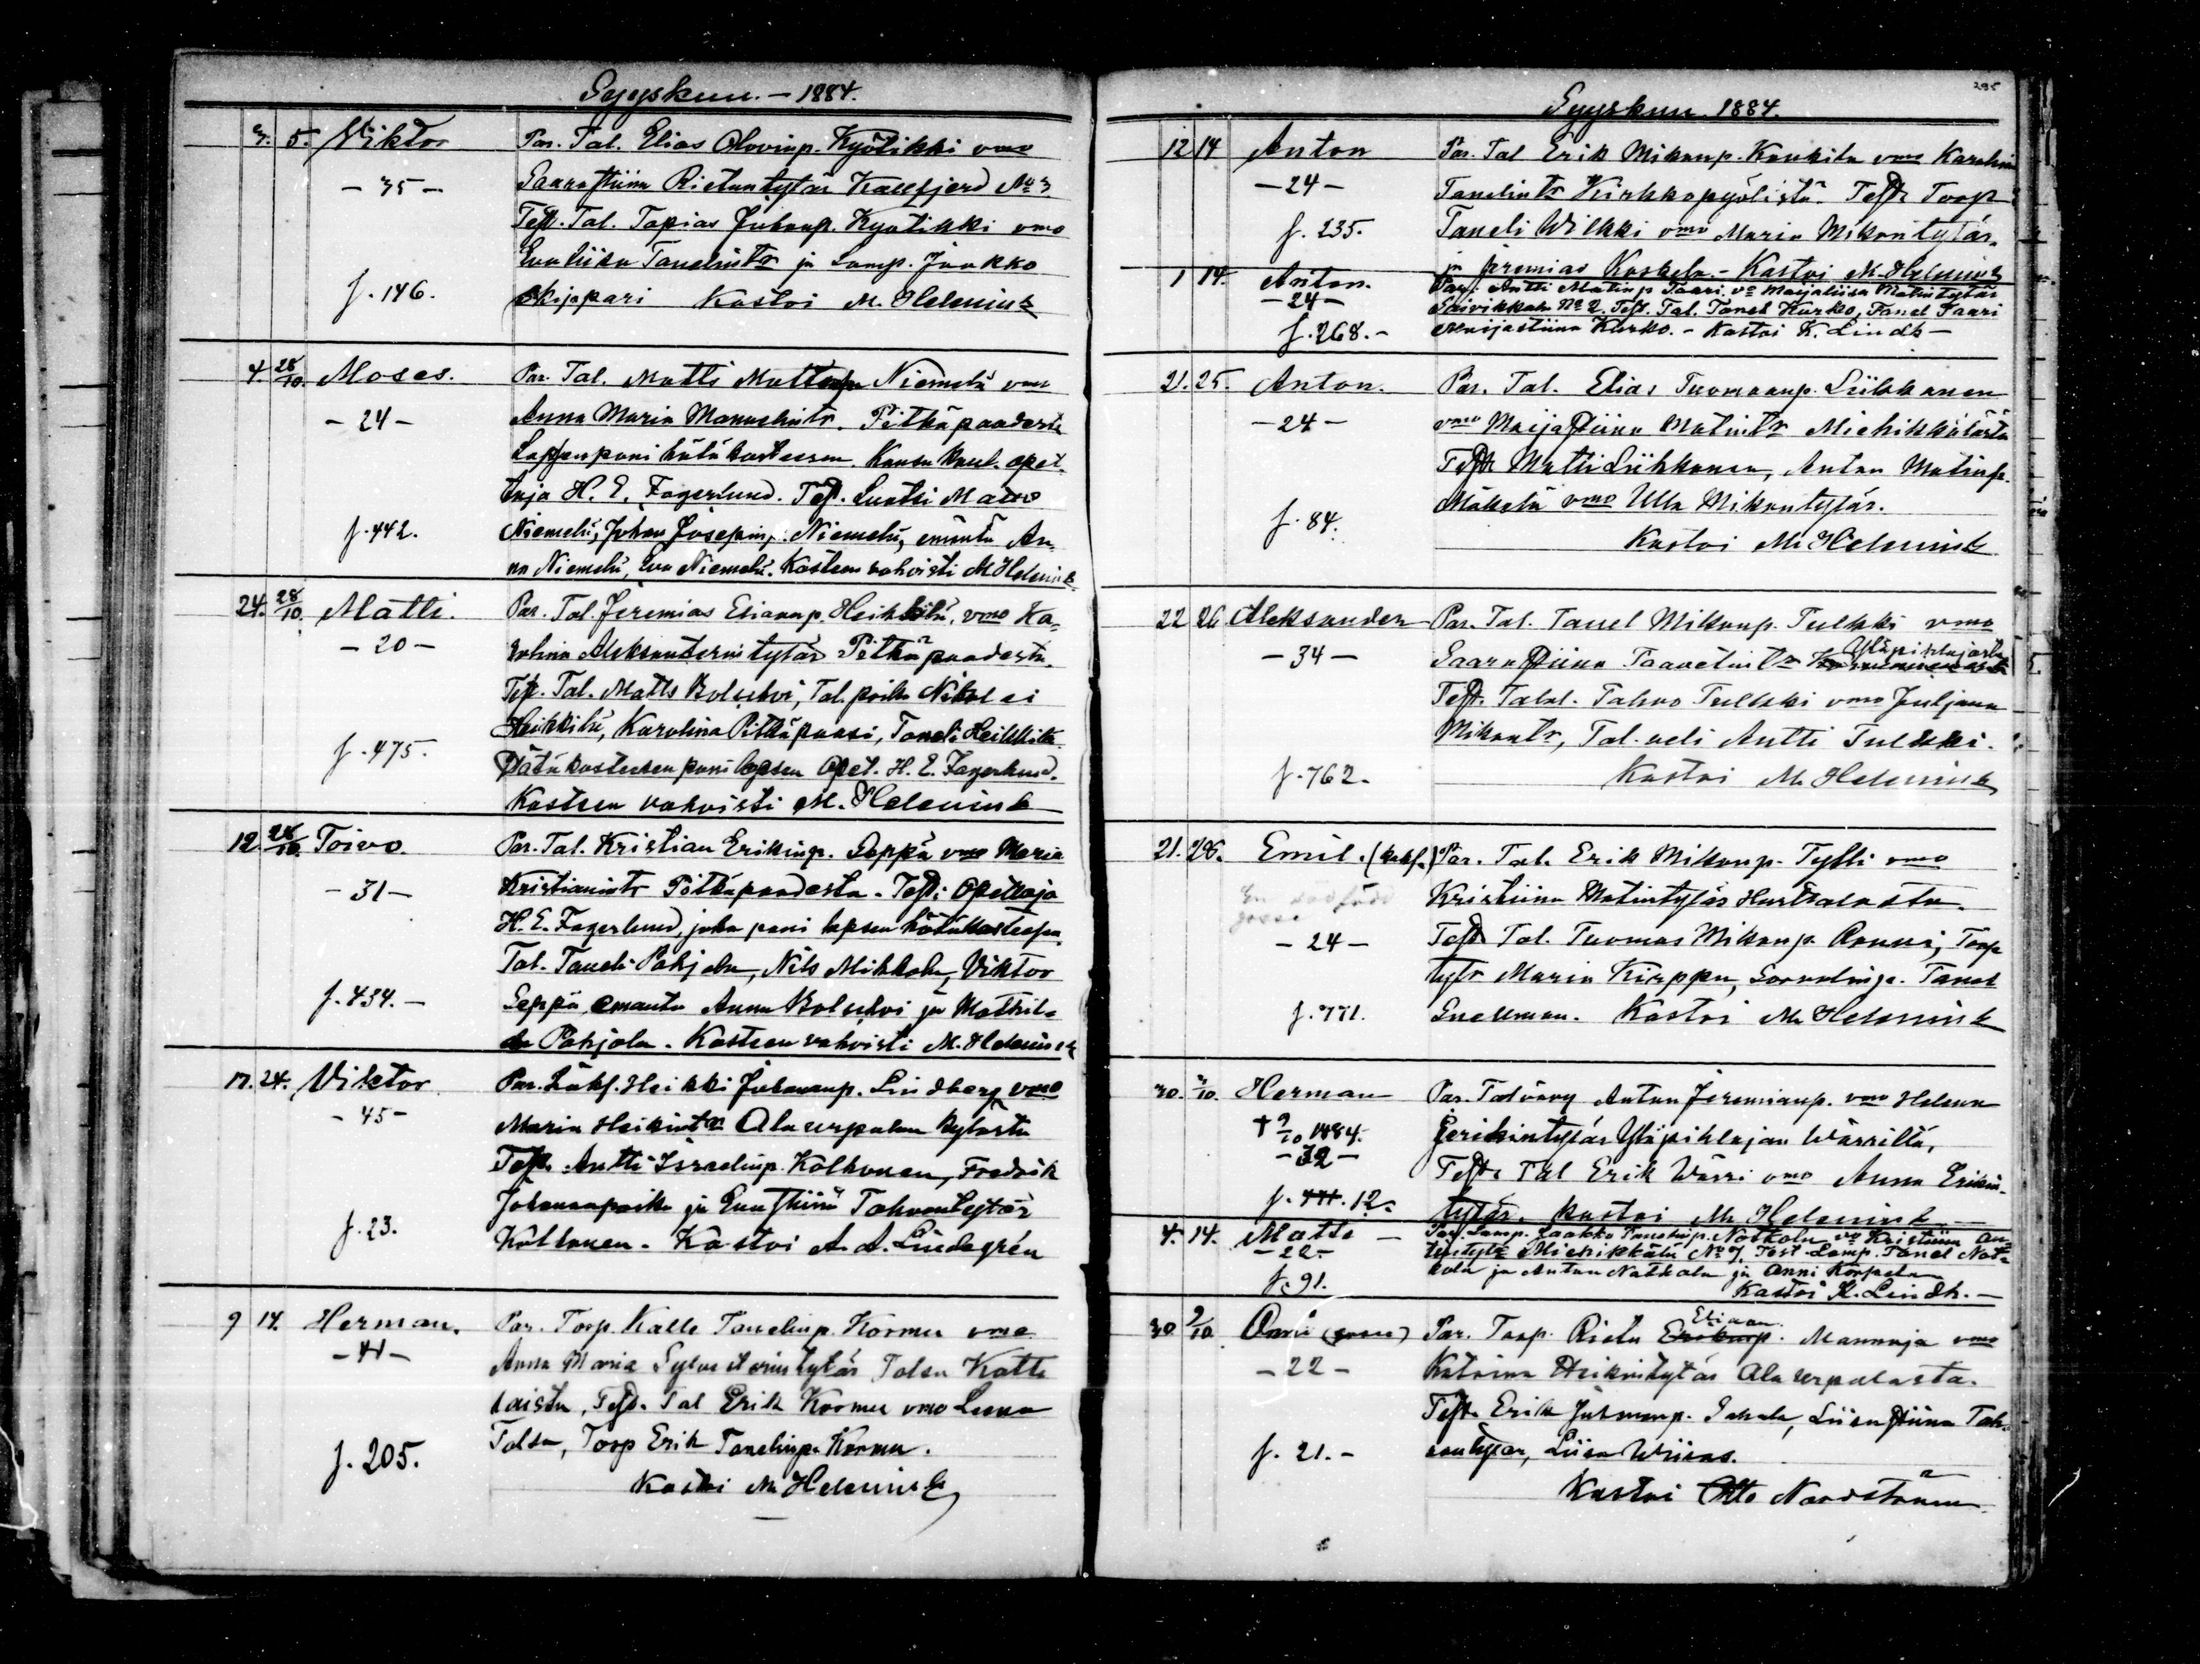 Syyskuu. – 1884.
3. 5. Viktor Par. Tal. Elias Olovinp. Kyötikki vmo
– 35 – Saarastiina Rietuntytär Kallfjerd No 3
Test. Tal. Topias Juhanp. Kyötikki vmo
Evaliisa Tanelintr ja Lamp. Jaakko
f. 146. Skippari Kastoi M. Helenius
4. 28/10. Moses. Par. Tal. Matti Matinp Niemelä vmo
– 24 – Anna Maria Manuelintr. Pitkäpaadesta
Lapsen pani hätäkasteesen Kansa koul. opet.
taja H. E. Fagerlund. Test. Luotsi Matts
f. 442. Niemelä, Johan Josefinp. Niemelä, emäntä An-
na Niemelä, Eva Niemelä. Kasteen vahvisti M Helenius
24. 28/10. Matti. Par. Tal Jeremias Elianp. Heikkilä, vmo Ka-
– 20 – rolina Aleksanterintytär Pitkäpaadesta.
Test. Tal. Matts Bolsehoi, Tal. poika Nikolei
Heikkilä, Karolina Pitkäpaasi, Taneli Heikkilä
f. 475. Hätäkasteesen pani lapsen Opet. H. E. Fagerlund.
Kasteen vahvisti M. Helenius
12. 28/10. Toivo. Par. Tal. Kristian Erikinp. Seppä vmo Maria
– 31 – Kristianintr Pitkäpaadesta. Test: Opettaja
H. E. Fagerlund, joka pani lapsen hätäkasteesen,
Tal. Taneli Pohjola, Nils Mikkola, Viktor
f. 434. – Seppä, emäntä Anna Bolsehoi ja Mathil-
da Pohjola. Kasteen vahvisti M. Helenius
17. 24. Viktor Par. Läksf. Heikki Juhananp. Lindberg vmo
– 45 – Maria Heikintr Ala urpalan kylästä
Test. Antti Israelinp. Kolhonen, Fredrik
Johananpoika ja Eva Stiina Tahvontytär
f. 23. Kolhonen. Kastoi A. A. Lindegrén
9 14. Herman. Par. Torp. Kalle Tanelinp. Kormu vmo
– 41 – Anna Maria Sylvesterintytär Tolsa Kotte
laista, Test. Tal Erik Kormu vmo Leena
Tolsa, Torp Erik Tanelinp. Kormu.
f. 205. Kastoi M Helenius
295
Syyskuu. 1884.
12 14 Anton Par. Tal Erik Mikonp. Kaukila vmo Karolina
– 24 – Tanelintr Kirkkopyölistä. Test Torp
f. 235. Taneli Wilkki vmo Maria Mikontytär,
ja Jeremias Koskela. – Kastoi M. Helenius
1 14. Anton. Par: Antti Matinp Paari vo Maijaliisa Matintytär
– 24 – Saivikkala No 2. Test. Tal. Tanel Kurko, Tanel Paari
f. 268. – Maijastiina Kurko. – Kastoi K. Lindh –
21. 25. Anton. Par. Tal. Elias Tuomaanp. Liikkanen
– 24 – vmo Maija Stiina Matintr Miehikkälästä
Test Matti Liikkanen, Anton Matinp.
f. 84. Mäkelä vmo Ulla Mikontytär.
Kastoi M Helenius
22 26 Aleksander Par. Tal. Tanel Mikonp. Tulkki vmo
– 34 – Saara Stiina Taavetintr Yläpihlajasta
Test. Talol. Tahvo Tulkki vmo Juljana
Mikontr, Tal. veli Antti Tulkki.
f. 762. Kastoi M Helenius
21. 28. Emil. (kaks.) Par. Tal. Erik Mikonp. Tylli vmo
En dödfödd gosse Kristiina Matintytär Hurttalasta.
– 24 – Test Tal. Tuomas Mikonp. Ronni, Torp
tytr Maria Kirppu, Soravlinja. Tanel
f. 771. Snellman. Kastoi M Helenius
30. 3/10. Herman Par. Talvävy Antun Jeremianp. vmo Helena
† 9/10 1884. Jerikintytär Yläpihlajan Wärrillä,
– 32 – Test. Tal Erik Wärri vmo Anna Erikin-
f. 12. tytär. Kastoi M Helenius –
4. 14. Matts – Par. Lamp. Jaakko Tanelinp. Notkola vo Kristiina An-
– 22 – tintytr Miehikkälä No 7, Test. Lamp. Tanel Not-
f. 91. kola ja Antun Notkola ja Anni Korpela
Kastoi K. Lindh. –
30 9/10. Onni (gosse) Par. Torp. Rietu Elianp. Mannoja vmo
– 22 – Katrina Heikintytär Ala urpalasta.
Test. Erik Juhananp. Sahala, Liisa Stiina Tah-
f. 21. – vontytär, Liisa Wiiras.
Kastoi Otto Nordström